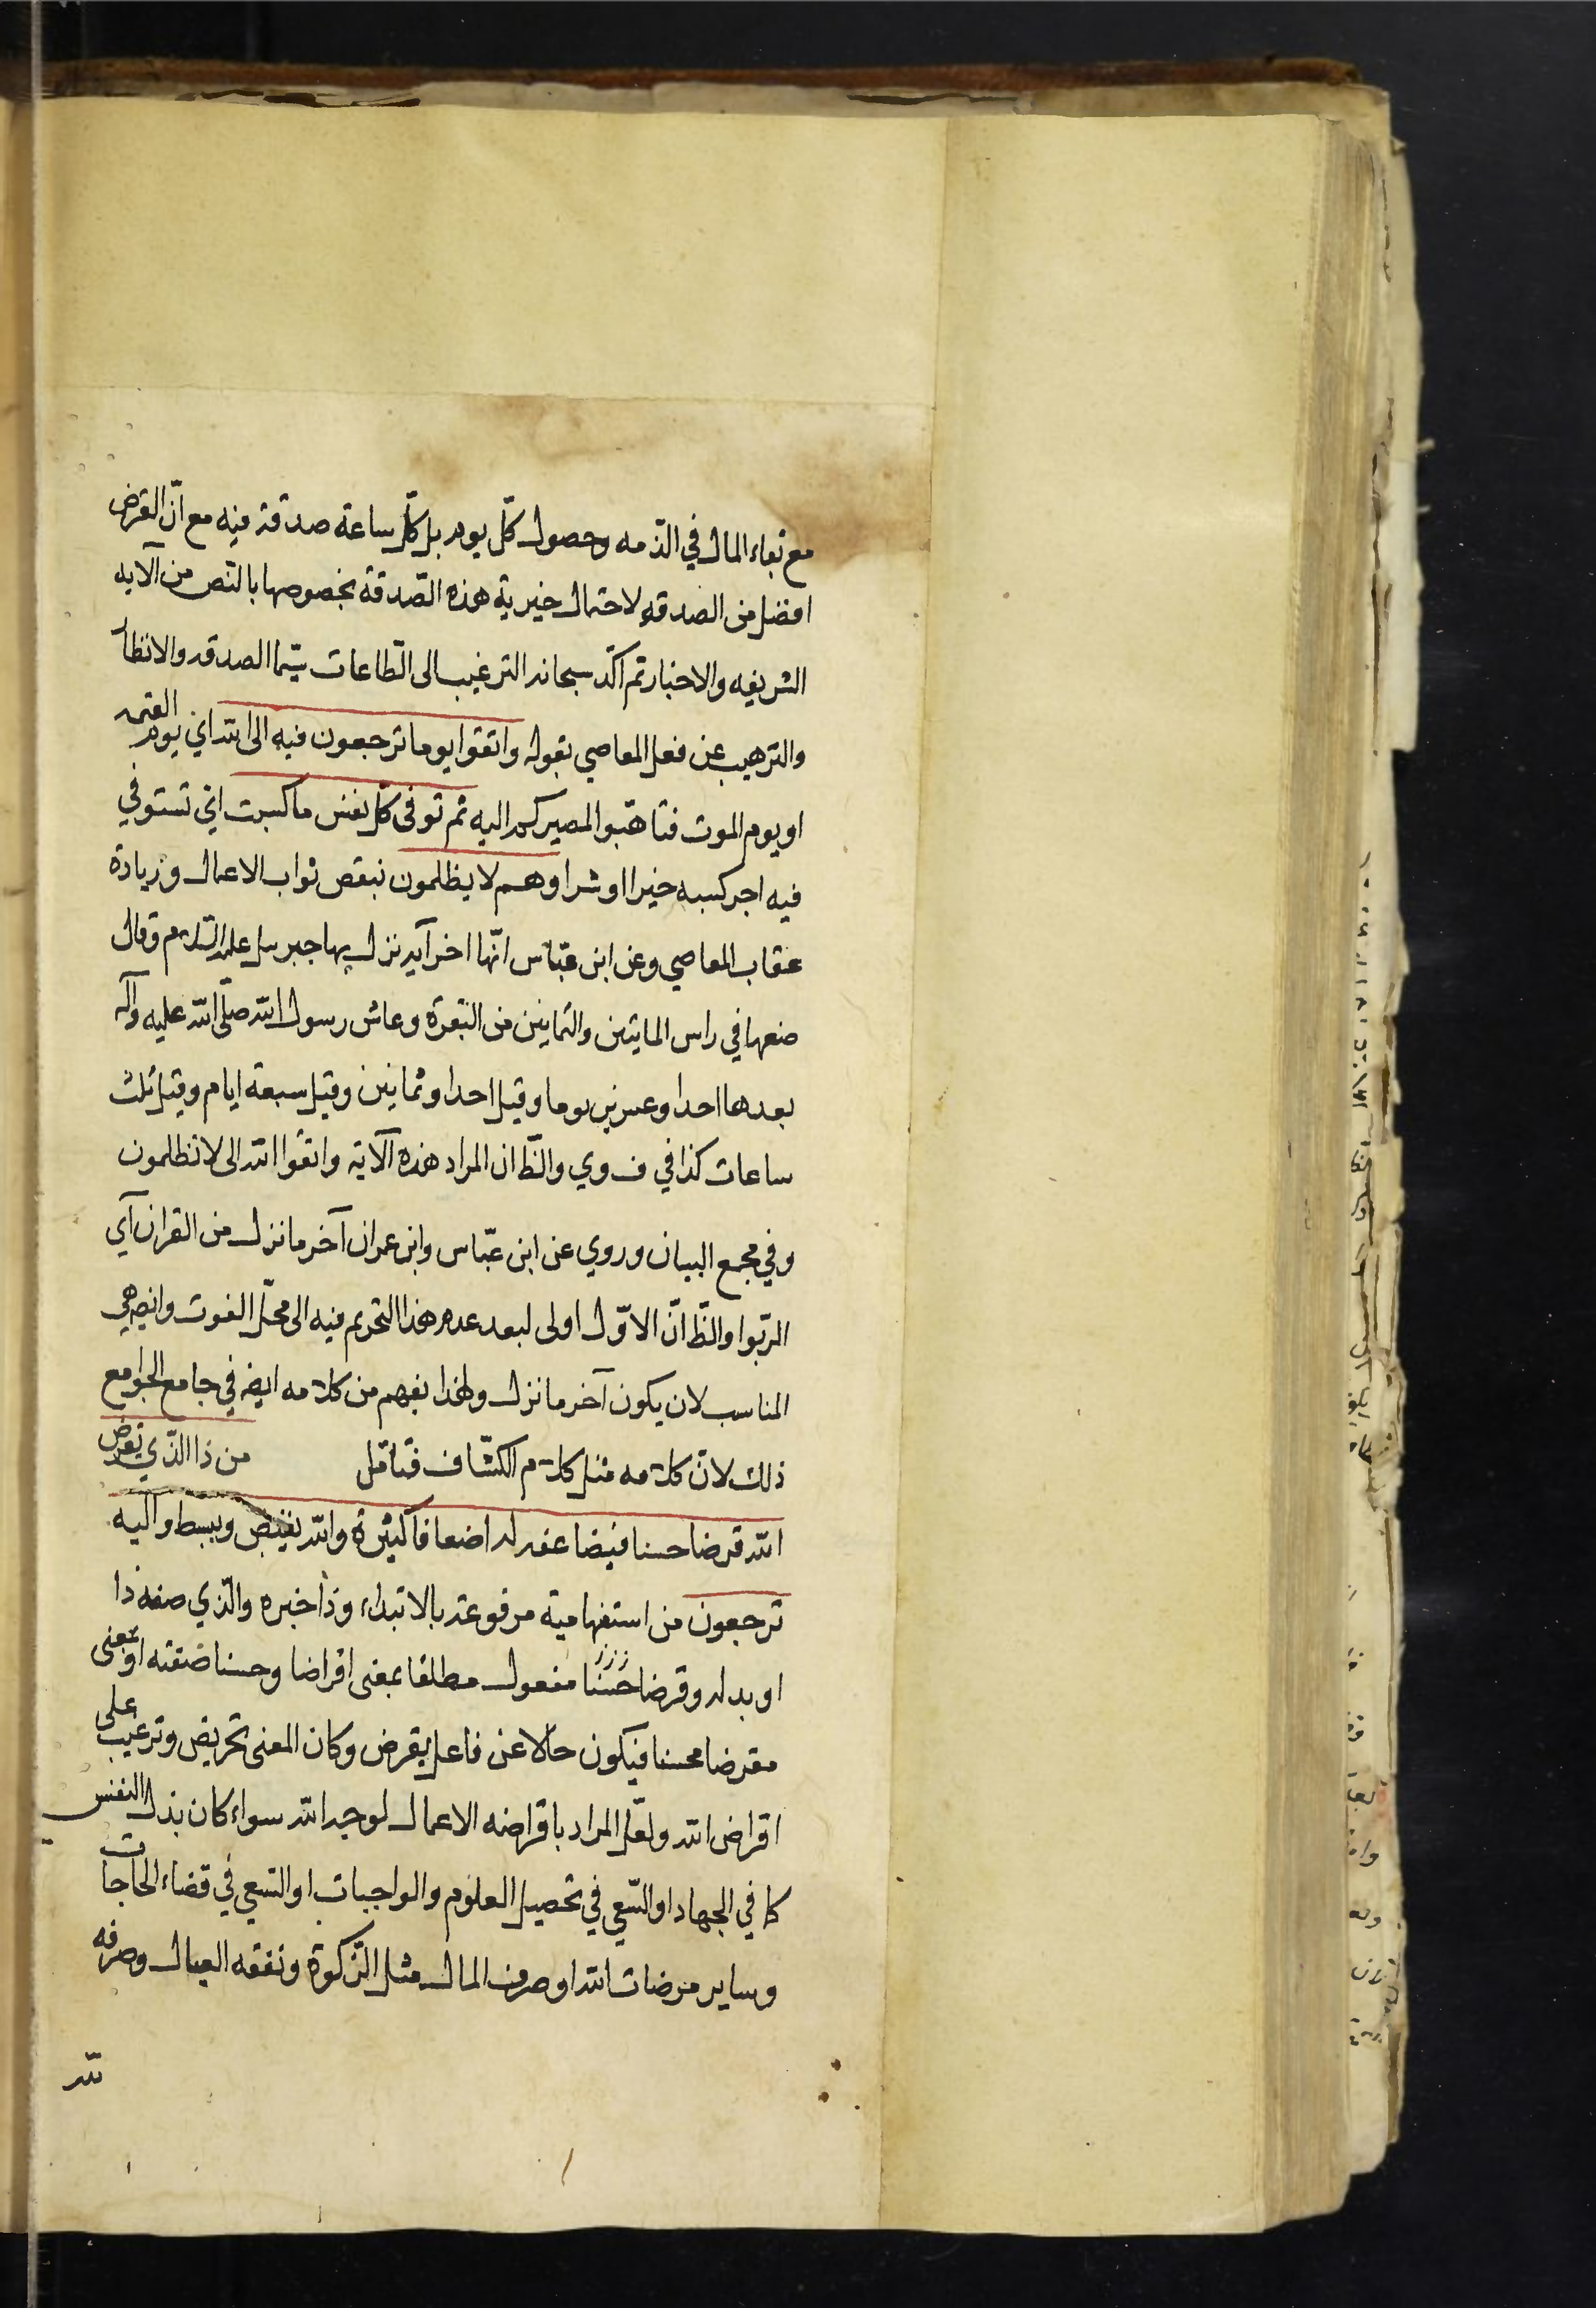 مع بقاء المال في الذمه وحصول كل يوم بل كل ساعة صدقة فيه مع ان القرض
افضل من الصدقه لاحتمال خيرية هذه الصدقة بخصوصها بالنص من الآيه
الشريفه والاخبار ثم اكد سبحانه الترغيب الى الطاعات سيما الصدقه والانظار
والترهيب عن فعل المعاصي بقوله واتقوا يوما ترجعون فيه الى الله اي يوم القيمه
او يوم الموت فتاهبوا لمصيركم اليه ثم توفى كل نفس ما كسبت اي تستوفي
فيه اجر كسبه خيرا او شرا وهم لا يظلمون بنقص ثواب الاعمال وزيادة
عقاب المعاصي وعن ابن عباس انها اخر آيه نزل بها جبرئيل عليه السلام وقال
ضعها في راس المايتين والثمانين من البقرة وعاش رسول الله صلى الله عليه وآله
بعدها احدا وعشرين يوما وقيل احدا وثمانين وقيل سبعة ايام وقيل ثلث
ساعات كذا في ف وي والظ ان المراد هذه الآية واتقوا الله الى لا تظلمون
وفي مجمع البيان وروي عن ابن عباس وابن عمر ان آخر ما نزل من القران آي
الربوا والظ ان الاول اولى لبعد عدم هذا التحريم فيه الى محل الفوت وايض هي
المناسب لان يكون آخر ما نزل ولهذا يفهم من كلامه ايض في جامع الجوامع
ذلك لان كلامه مثل كلام الكشاف فتامل من ذا الذي يقرض
الله قرضا حسنا فيضاعفه له اضعافا كثيرة والله يقبض ويبسط واليه
ترجعون من استفهامية مرفوعة بالابتداء وذا خبره والذي صفة ذا
او بدله وقرضا حسنا مفعول مطلقا بمعنى اقراضا وحسنا صفته او بمعنى
مقرضا محسنا فيكون حالا عن فاعل يقرض وكان المعنى تحريض وترغيب على
اقراض الله ولعل المراد باقراضه الاعمال لوجه الله سواء كان بذل النفس
كما في الجهاد او السعي في تحصيل العلوم والواجبات او السعي في قضاء الحاجات
وساير مرضات الله او صرف المال مثل الزكوة ونفقه العيال وصرفه
لله